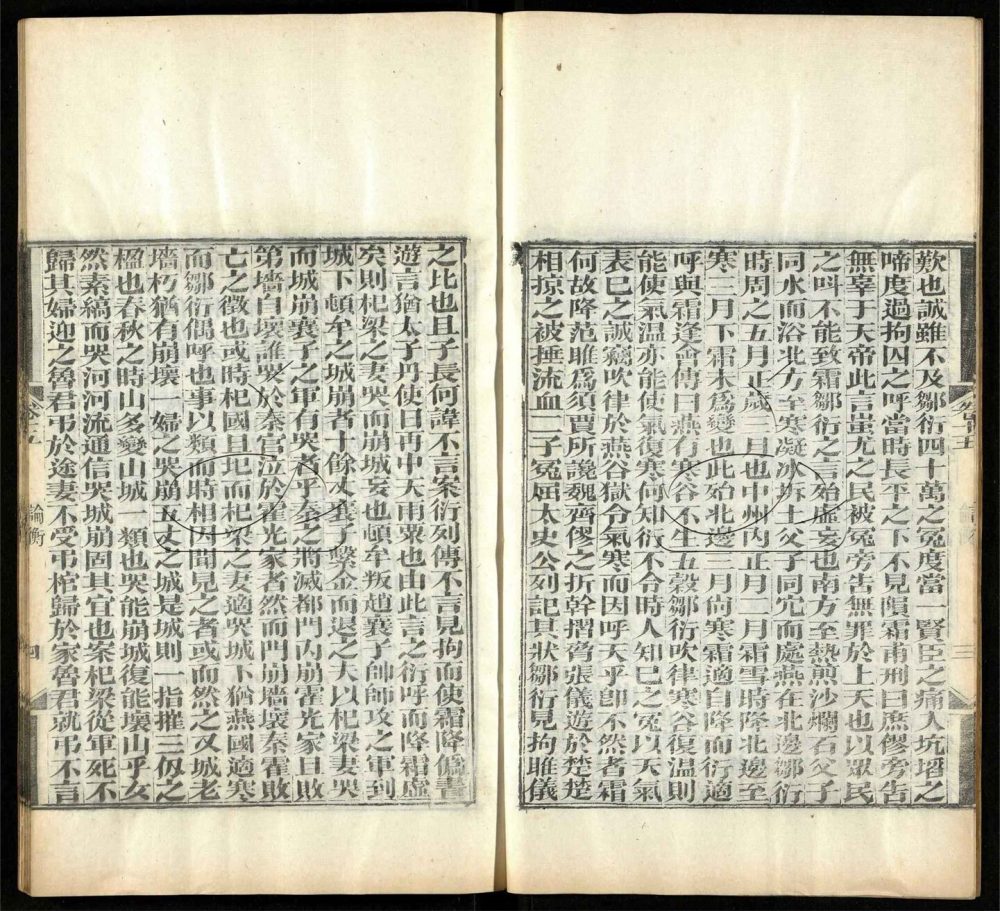 歎也誠雖不及鄒衍四十萬之冤度當一賢臣之痛入坑埳之
啼度過拘囚之呼當時長平之下不見隕霜甫刑曰庶僇旁告
無辜于天帝此言蚩尤之民被冤旁告無罪於上天也以眾民
之叫不能致霜鄒衍之言殆虛妄也南方至熱煎沙爛石父子
同水而浴北方至寒凝冰坼土父子同穴而處燕在北邊鄒衍
時周之五月正歲三月也中州內正月二月霜雪時降北邊至
寒三月下霜未爲變也此殆北邊三月尙寒霜適自降而衍適
呼與霜逢會傳曰燕有寒谷不生五穀鄒衍吹律寒谷復溫則
能使氣溫亦能使氣復寒何知衍不令時人知己之冤以天氣
表己之誠竊吹律於燕谷獄令氣寒而因呼天乎卽不然者霜
何故降范雎爲須賈所讒魏齊僇之折幹摺脅張儀遊於楚楚
相掠之被捶流血二子冤屈太史公列記其狀鄒衍見拘雎儀
之比也且子長何諱不言案衍列傳不言見拘而使霜降僞書
遊言猶太子丹使日再中天雨粟也由此言之衍呼而降霜虛
矣則杞梁之妻哭而崩城妄也頓牟叛趙襄子帥師攻之軍到
城下頓牟之城崩者十餘丈襄子擊金而退之夫以杞梁妻哭
而城崩襄子之軍有哭者乎秦之將滅都門內崩霍光家且敗
第墻自壞誰哭於秦宮泣於霍光家者然而門崩墻壞秦霍敗
亡之徵也或時杞國且圮而杞梁之妻適哭城下猶燕國適寒
而鄒衍偶呼也事以類而時相因聞見之者或而然之又城老
墻朽猶有崩壞一婦之哭崩五丈之城是城則一指摧三仭之
楹也春秋之時山多變山城一類也哭能崩城復能壞山乎女
然素縞而哭河河流通信哭城崩固其宜也案杞梁從軍死不
歸其婦迎之魯君弔於途妻不受弔棺歸於家魯君就弔不言
論衡
四